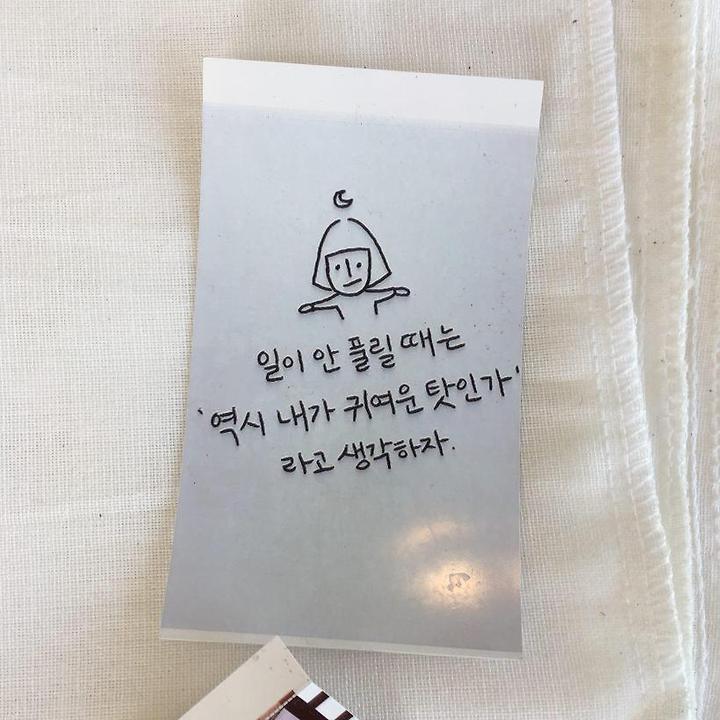 일이 안 풀릴 때는
'역시 내가 귀여운 탓인가'
라고 생각하자.